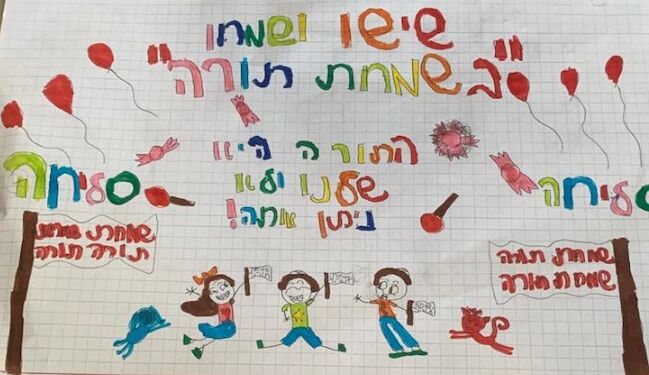 שישו ושמחו
"בשמחת תורה"
התורה היא
שלנו ולא
ניתן אותה!
סליחה
סליחה
שמחת שמחת
תורה תורה
שמחת תורה
שמחת תורה